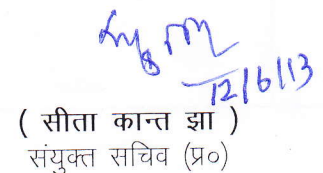 12/6/13
( सीता कान्त झा )
संयुक्त सचिव (प्र०)